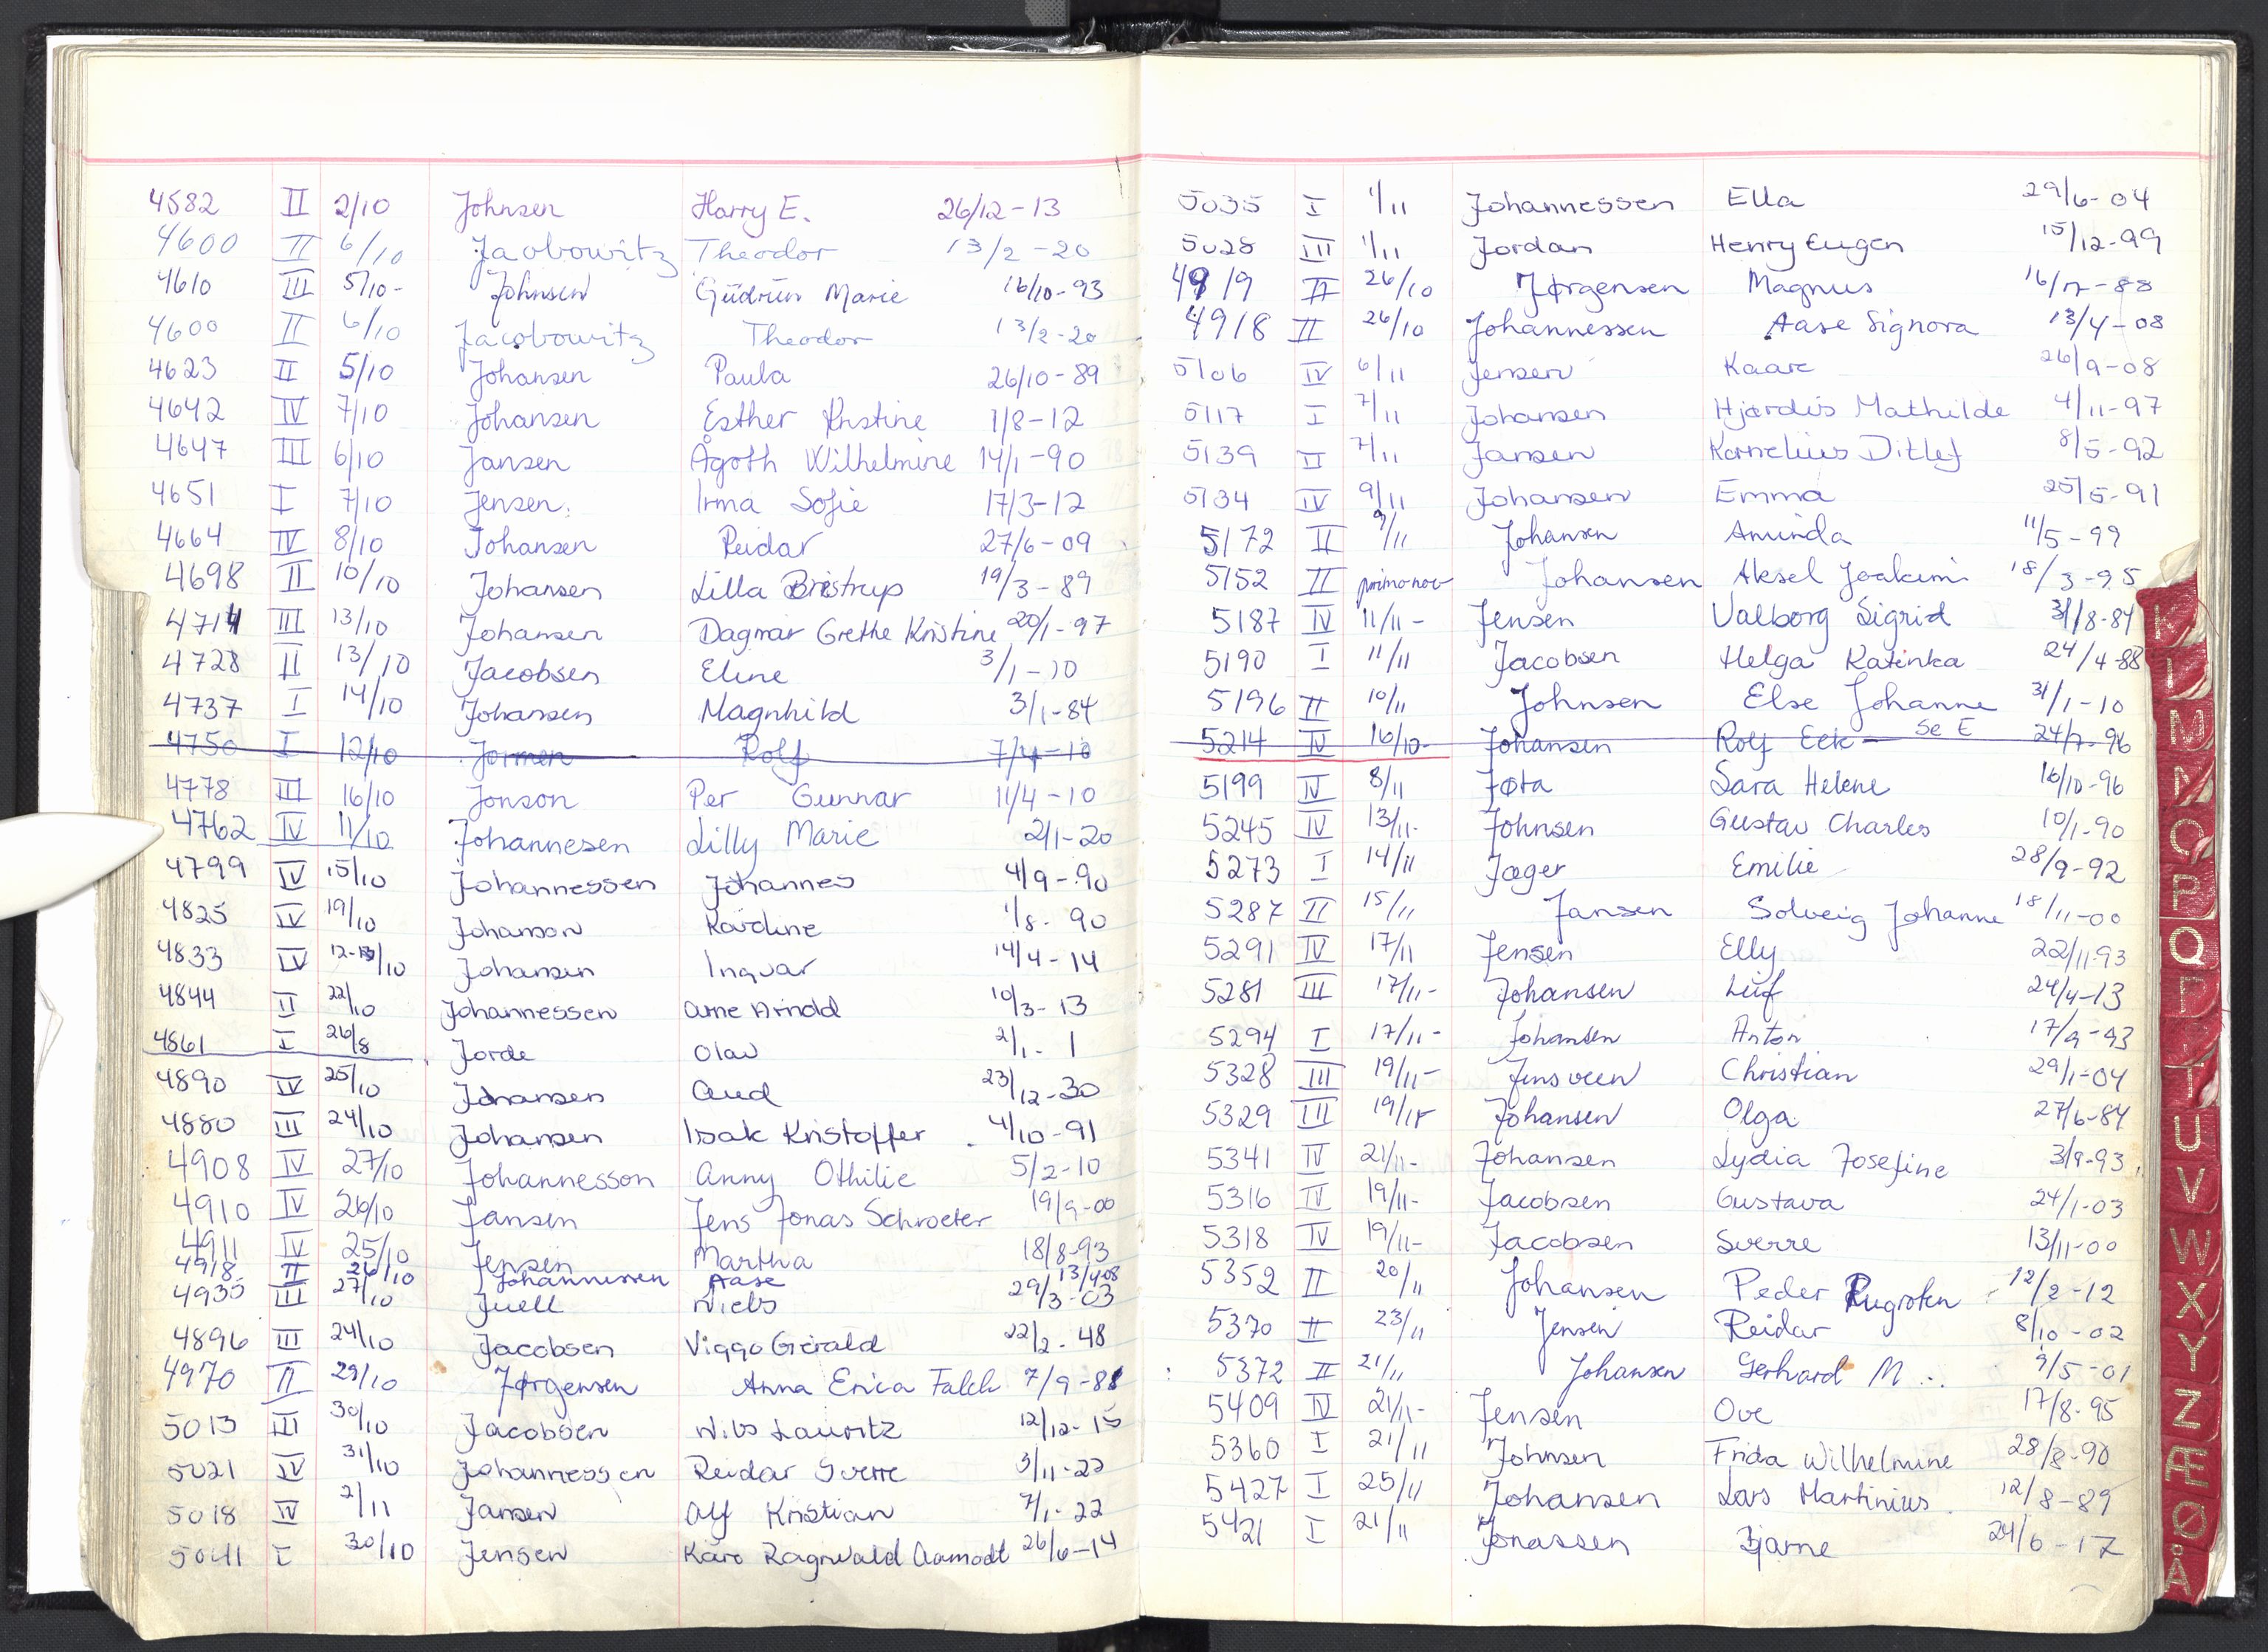 4582 II 2/10 Johnsen Harry E. 26/12-13
4600 II 6/10 Jacobowitz Theodor 13/2-20
4610 III 5/10- Johnsen Gudrun Marie 16/10-93
4600 II 6/10 Jacobowitz Theodor 13/2-20
4623 II 5/10 Johansen Paula 26/10-89
4642 IV 7/10 Johansen Esther Kristine 1/8-12
4647 III 6/10 Jansen Ågoth Wilhelmine 14/1-90
4651 I 7/10 Jensen Irma Sofie 17/3-12
4664 IV 8/10 Johansen Reidar 27/6-09
4698 II 10/10 Johansen Lilla Bristrup 19/3-89
4714 III 13/10 Johansen Dagmar Grethe Kristine 20/1-97
4728 II 13/10 Jacobsen Eline 3/1-10
4737 I 14/10 Johansen Magnhild 3/1-84
4750 I 12/10 Jormen Rolf 7/4-10
4778 III 16/10 Jonson Per Gunnar 11/4-10
4762 IV 11/10 Johannesen Lilly Marie 2/1-20
4799 IV 15/10 Johannessen Johannes 4/9-90
4825 IV 19/10 Johanson Karoline 1/8-90
4833 IV 12-13/10 Johansen Ingvar 14/4-14
4844 II 22/10 Johannessen Arne Arnold 10/3-13
4861 I 26/8 Jorde Olav 2/1-1
4890 IV 25/10 Johansen Aud 23/12-30
4880 III 24/10 Johansen Isak Kristoffer 4/10-91
4908 IV 27/10 Johannesson Anny Othilie 5/2-10
4910 IV 26/10 Jansen Jens Jonas Schroeter 19/9-00
4911 IV 25/10 Jensen Martha 18/8-93
4918 II 26/10 Johannessen Aase 13/4-08
4935 III 27/10 Juell Niels 29/3-03
4896 III 24/10 Jacobsen Viggo Gerald 22/2-48
4970 II 29/10 Jørgensen Anna Erica Falch 7/9-88
5013 III 30/10 Jacobsen Nils Lauritz 12/12-15
5021 IV 31/10 Johannessen Reidar Sverre 3/11-22
5018 IV 2/11 Jansen Alf Kristian 7/1-22
5041 I 30/10 Jensen Kåre Ragnvald Aamodt 26/6-14
5035 I 1/11 Johannessen Ella 29/6-04
5028 III 1/11 Jordan Henry Eugen 15/12-99
4919 II 26/10 Jørgensen Magnus 16/12-88
4918 II 26/10 Johannessen Aase Signora 13/4-08
5106 IV 6/11 Jensen Kaare 26/9-08
5117 I 7/11 Johansen Hjørdis Mathilde 4/11-97
5139 II 7/11 Jansen Kornelius Ditlef 8/5-92
5134 IV 9/11 Johansen Emma 25/5-91
5172 II 9/11 Johansen Aminda 11/5-99
5152 II primo nov Johansen Aksel Joakim 18/3-95
5187 IV 11/11- Jensen Valborg Sigrid 31/8-84
5190 I 11/11 Jacobsen Helga Katinka 24/4-88
5196 II 10/11 Johnsen Else Johanne 31/1-10
5214 IV 16/10- Johansen Rolf Eek - Se E 24/7-96
5199 IV 8/11 Jøta Sara Helene 16/10-96
5245 IV 13/11- Johnsen Gustav Charles 10/1-90
5273 I 14/11 Jæger Emilie 28/9-92
5287 II 15/11 Jansen Solveig Johanne 18/11-00
5291 IV 17/11 Jensen Elly 22/11-93
5281 III 17/11- Johansen Leif 24/4-13
5294 I 17/11- Johansen Anton 17/9-93
5328 III 19/11- Jensveen Christian 29/1-04
5329 III 19/11 Johansen Olga 27/6-84
5341 IV 21/11- Johansen Lydia Josefine 3/9-93
5316 IV 19/11- Jacobsen Gustava 24/1-03
5318 IV 19/11- Jacobsen Sverre 13/11-00
5352 II 20/11 Johansen Peder Rugroten 12/2-12
5370 II 23/11 Jensen Reidar 8/10-02
5372 II 21/11 Johansen Gerhard M. 9/5-01
5409 IV 21/11- Jensen Ove 17/8-95
5360 I 21/11 Johnsen Frida Wilhelmine 28/8-90
5427 I 25/11 Johansen Lars Martinius 12/8-89
5421 I 21/11 Jonassen Bjarne 24/6-17
K
L
M
N
O
P
Q
R
T
U
V
W
X
Y
Z
Æ
Ø
Å